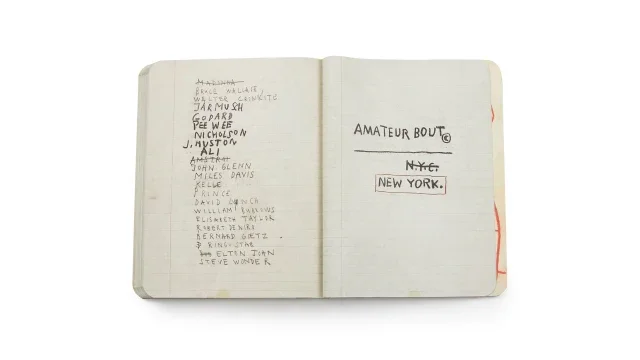 MADONNA
BRUCE WALLACE
WALTER CRONKITE
JARMUSH
GODARD
PEE WEE
NICHOLSON
J. HUSTON
ALI
JOHN GLENN
MILES DAVIS
KELLE
PRINCE
DAVID BOWIE
WILLIAM BURROWS
ELISABETH TAYLOR
ROBERT DENIRO
BERNARD GOETZ
ELTON JOHN
STEVE WONDER
AMATEUR BOUT©
N.Y.C.
NEW YORK.